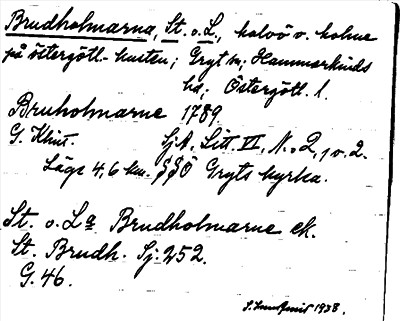 Brudholmarna, St. o. L., halvö o. holme
på östergötl. kusten; Gryt sn; Hammarkinds
hd; Östergötl. l.
Bruholmarne 1789
G. Klint. SjA, Litt. VI, N. 2, v. 2.
Läge 4,6 km. SSÖ Gryts kyrka.
St. o. La Brudholmarne ek.
St. Brudh. Sj. 252.
G. 46.
1938.